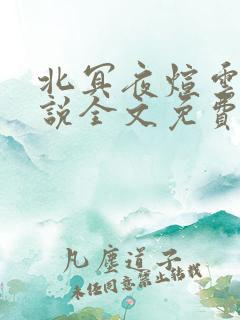 北冥夜煊雲
說全文免費
凡塵道子
未经同意禁止转载